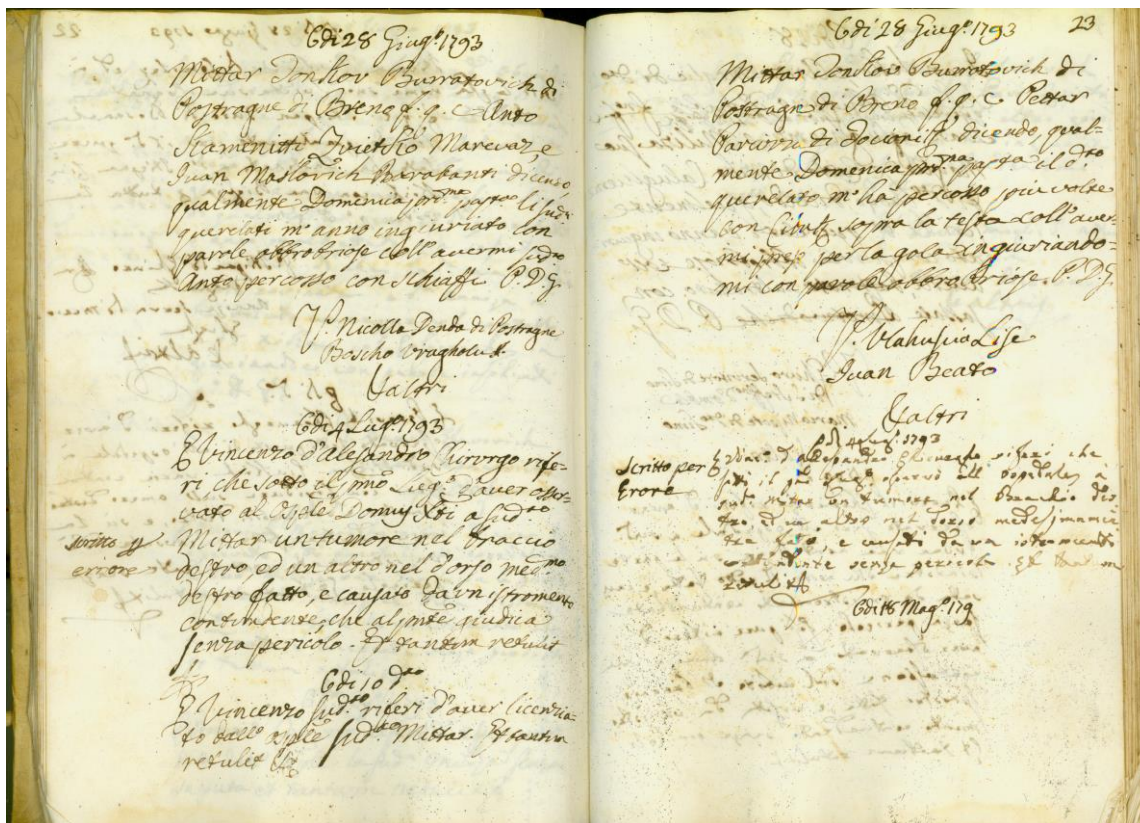 Adi 28 Giug.º 1793
Mittar Tonkov Burratovich di
Postragne di Breno f. q. c Anto
Stamenitti Zvietko Marevaz, e
Ivan Maslarich Barabanti dicendo,
qualmente Domenica prs.ma passa li sud.ti
querelati m'anno ingiuriato con
parole obbrobriose coll'avermi sud.to
Anto percosso con schiaffi P.D.G.
T. Nicolla Denda di Postragne
Boscho
& altri
Adi 4 Lug.º 1793
E Vincenzo d'Alesandro Chirurgo rife-
ri che sotto il p.mo d'aver osser-
vato al Osple Domus Xti a sud.to
scritto p
errore
Mittar un tumore nel braccio
destro, ed un altro nel d'orso med.mo
destro fatto, e causato da un istromento
contundente, che al p.nte giudica
senza pericolo. Et tantum retulit
Adi 10 d.to
E Vincenzo sud.to riferi d'aver licenzia-
to dall' osple sud.to Mittar. Et tantum
retulit
23
Adi 28 Giug.º 1793
Mittar Tonkov Burratovich di
Postragne di Breno f. q. c Pettar
di dicendo, qual-
mente Domenica prs.ma passa il d.to
querelato m'ha percosso piu volte
con sopra la testa coll'aver-
mi preso per la gola ingiuriando-
mi con parole obbrobriose. P.D.G.
T. Vlahusia Lise
Ivan Beato
& altri
Adi 4 Lug. 1793
Scritto per
Erore
E Vinc.º d'Alessandro Chirurgho riferi che
osservò all' ospitale, a
sud. Mitar un tumore nel Braccio des-
tro ed un altro nel dorso medesimamen-
te, e causati da un istromento
contundente senza pericolo. Et tantum
retulit
Adi 18 Mag.º 179